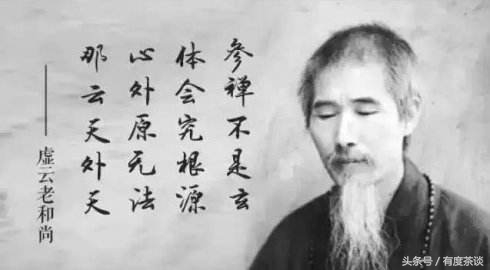 参禅不是玄
体会究根源
心外原无法
那云天外天
——虚云老和尚
头条号 / 有度茶谈